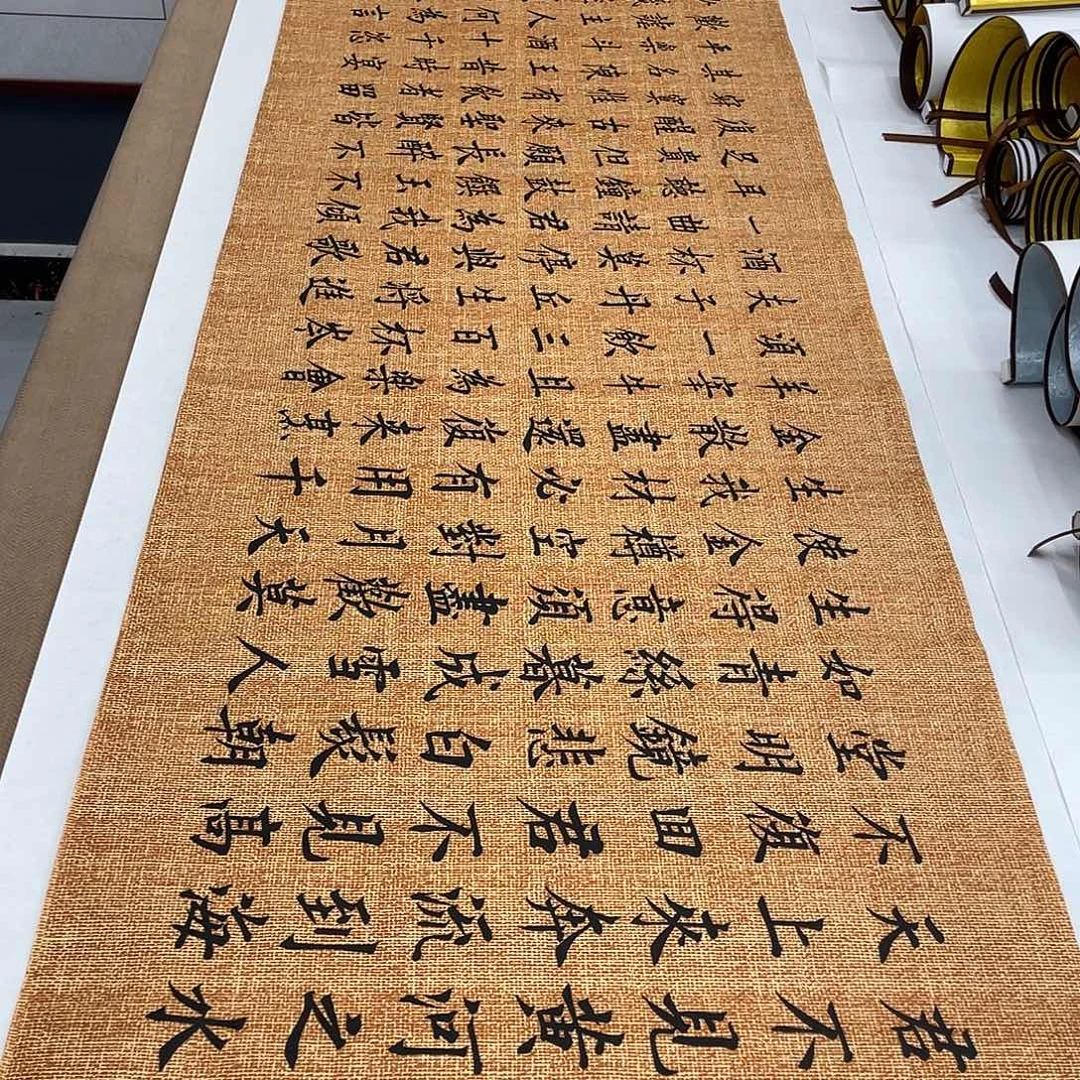 君不見黃河之水
天上來奔流到海
不復回君不見高
堂明鏡悲白髮朝
如青絲暮成雪人
生得意須盡歡莫
使金樽空對月天
生我材必有用千
金散盡還復來烹
羊宰牛且為樂會
須一飲三百杯岑
夫子丹丘生將進
酒杯莫停與君歌
一曲請君為我傾
耳聽鐘鼓饌玉不
足貴但願長醉不
復醒古來聖賢皆
寂寞惟有飲者留
其名陳王昔時宴
平樂斗酒十千恣
歡謔主人何為言